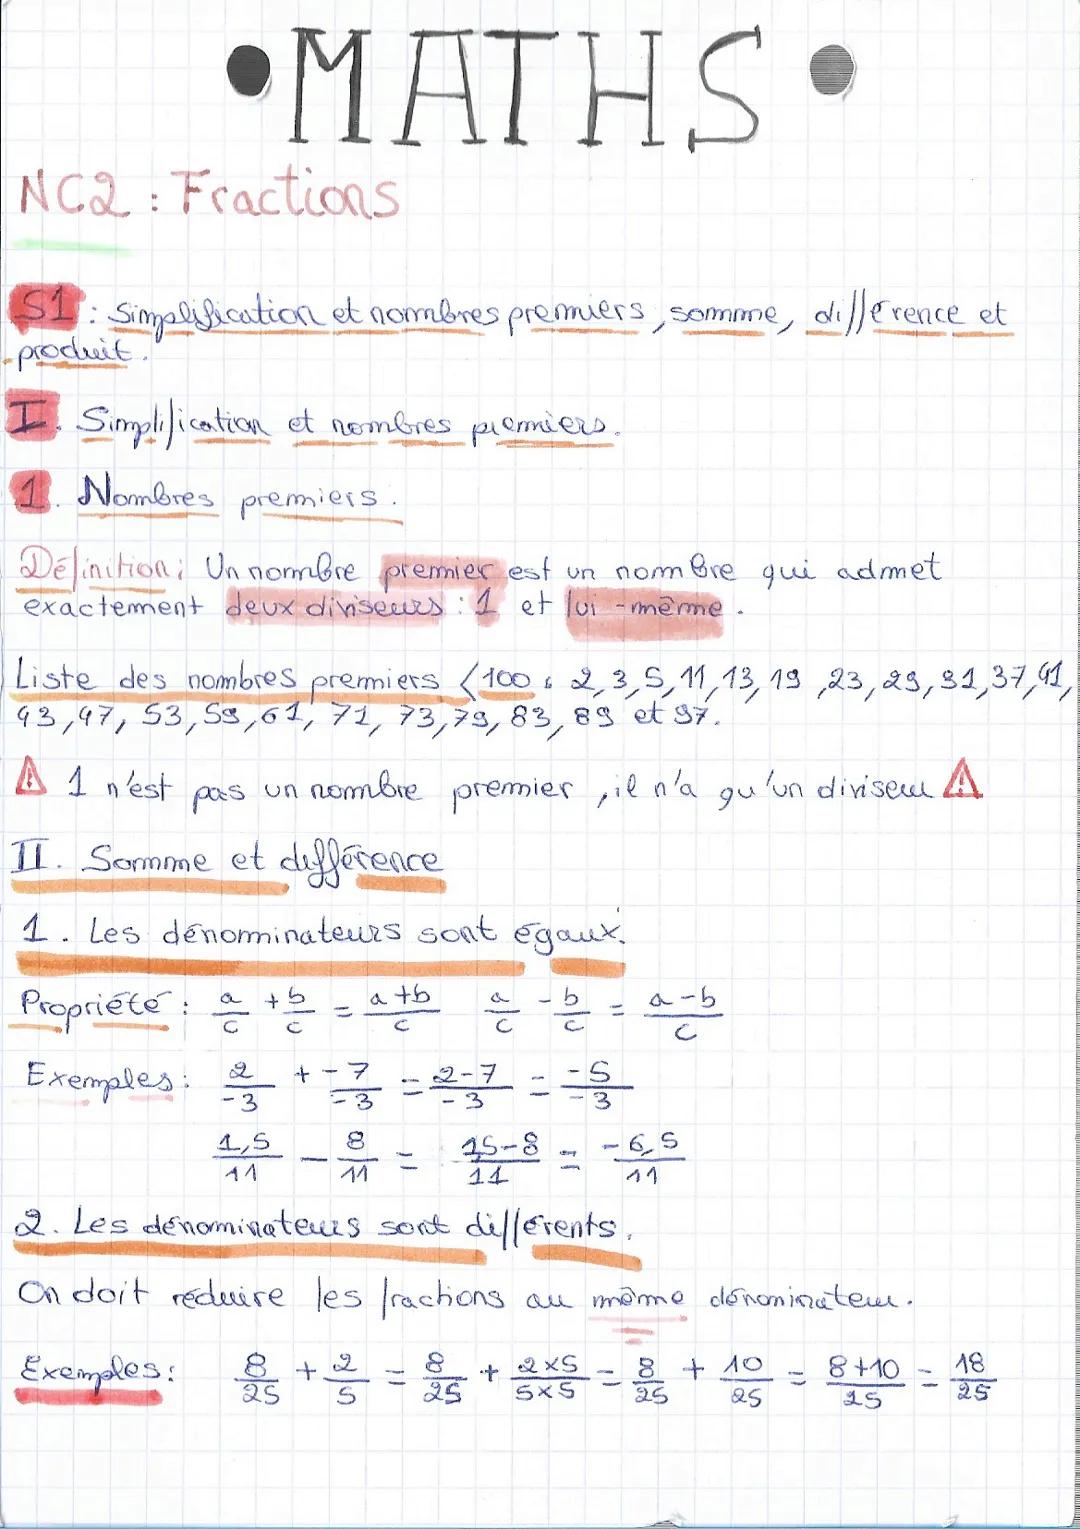 •MATHS•
NC2 : Fractions
S1 : Simplification et nombres premiers, somme, différence et
produit.
I. Simplification et nombres premiers.
1. Nombres premiers.
Définition : Un nombre premier est un nombre qui admet
exactement deux diviseurs : 1 et lui-même.
Liste des nombres premiers <100 : 2, 3, 5, 11, 13, 19, 23, 29, 31, 37, 41,
43, 47, 53, 59, 61, 71, 73, 79, 83, 89 et 97.
⚠ 1 n'est pas un nombre premier, il n'a qu'un diviseur ⚠
II. Somme et différence
1. Les dénominateurs sont égaux.
Propriété : a/c + b/c = a+b/c a/c - b/c = a-b/c
Exemples : 2/-3 + -7/-3 = 2-7/-3 = -5/-3
1,5/11 - 8/11 = 15-8/11 = -6,5/11
2. Les dénominateurs sont différents.
On doit réduire les fractions au même dénominateur.
Exemples : 8/25 + 2/5 = 8/25 + 2×5/5×5 = 8/25 + 10/25 = 8+10/25 = 18/25